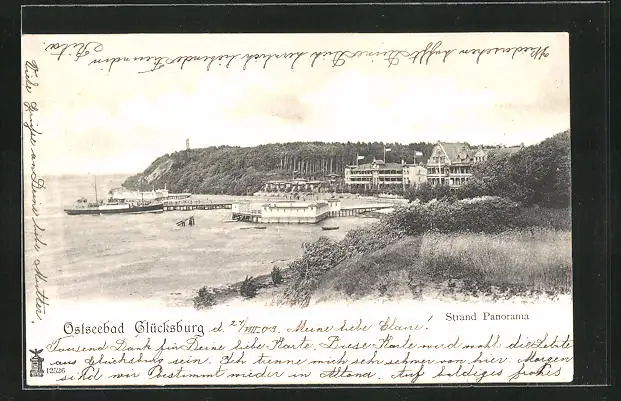 Ostseebad Glücksburg d. 27/VIII.03. Meine liebe Claire!
Strand Panorama
Tausend Dank für Deine liebe Karte. Diese Karte wird wohl die letzte
aus Glücksburg sein. Ich trenne mich sehr schwer von hier. Morgen
sind wir bestimmt wieder in Altona. Auf baldiges frohes
Wiedersehen hofft Deine Dich herzlich liebende Freundin
Viele Grüße an Deine liebe Mutter.
12526